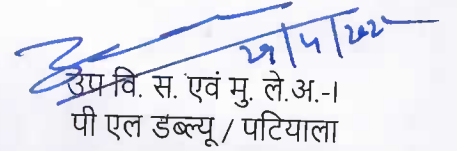 उप वि. स. एवं मु. ले.अ.-I
पी एल डब्ल्यू / पटियाला